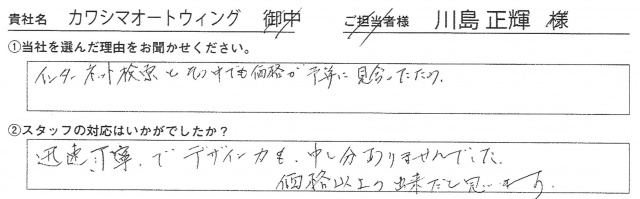 貴社名 カワシマオートウィング 御中 ご担当者様 川島 正輝 様
①当社を選んだ理由をお聞かせください。
インターネット検索し その中でも価格が予算に見合ったため。
②スタッフの対応はいかがでしたか？
迅速丁寧、でデザイン力も、申し分ありませんでした。
価格以上の出来だと思います。